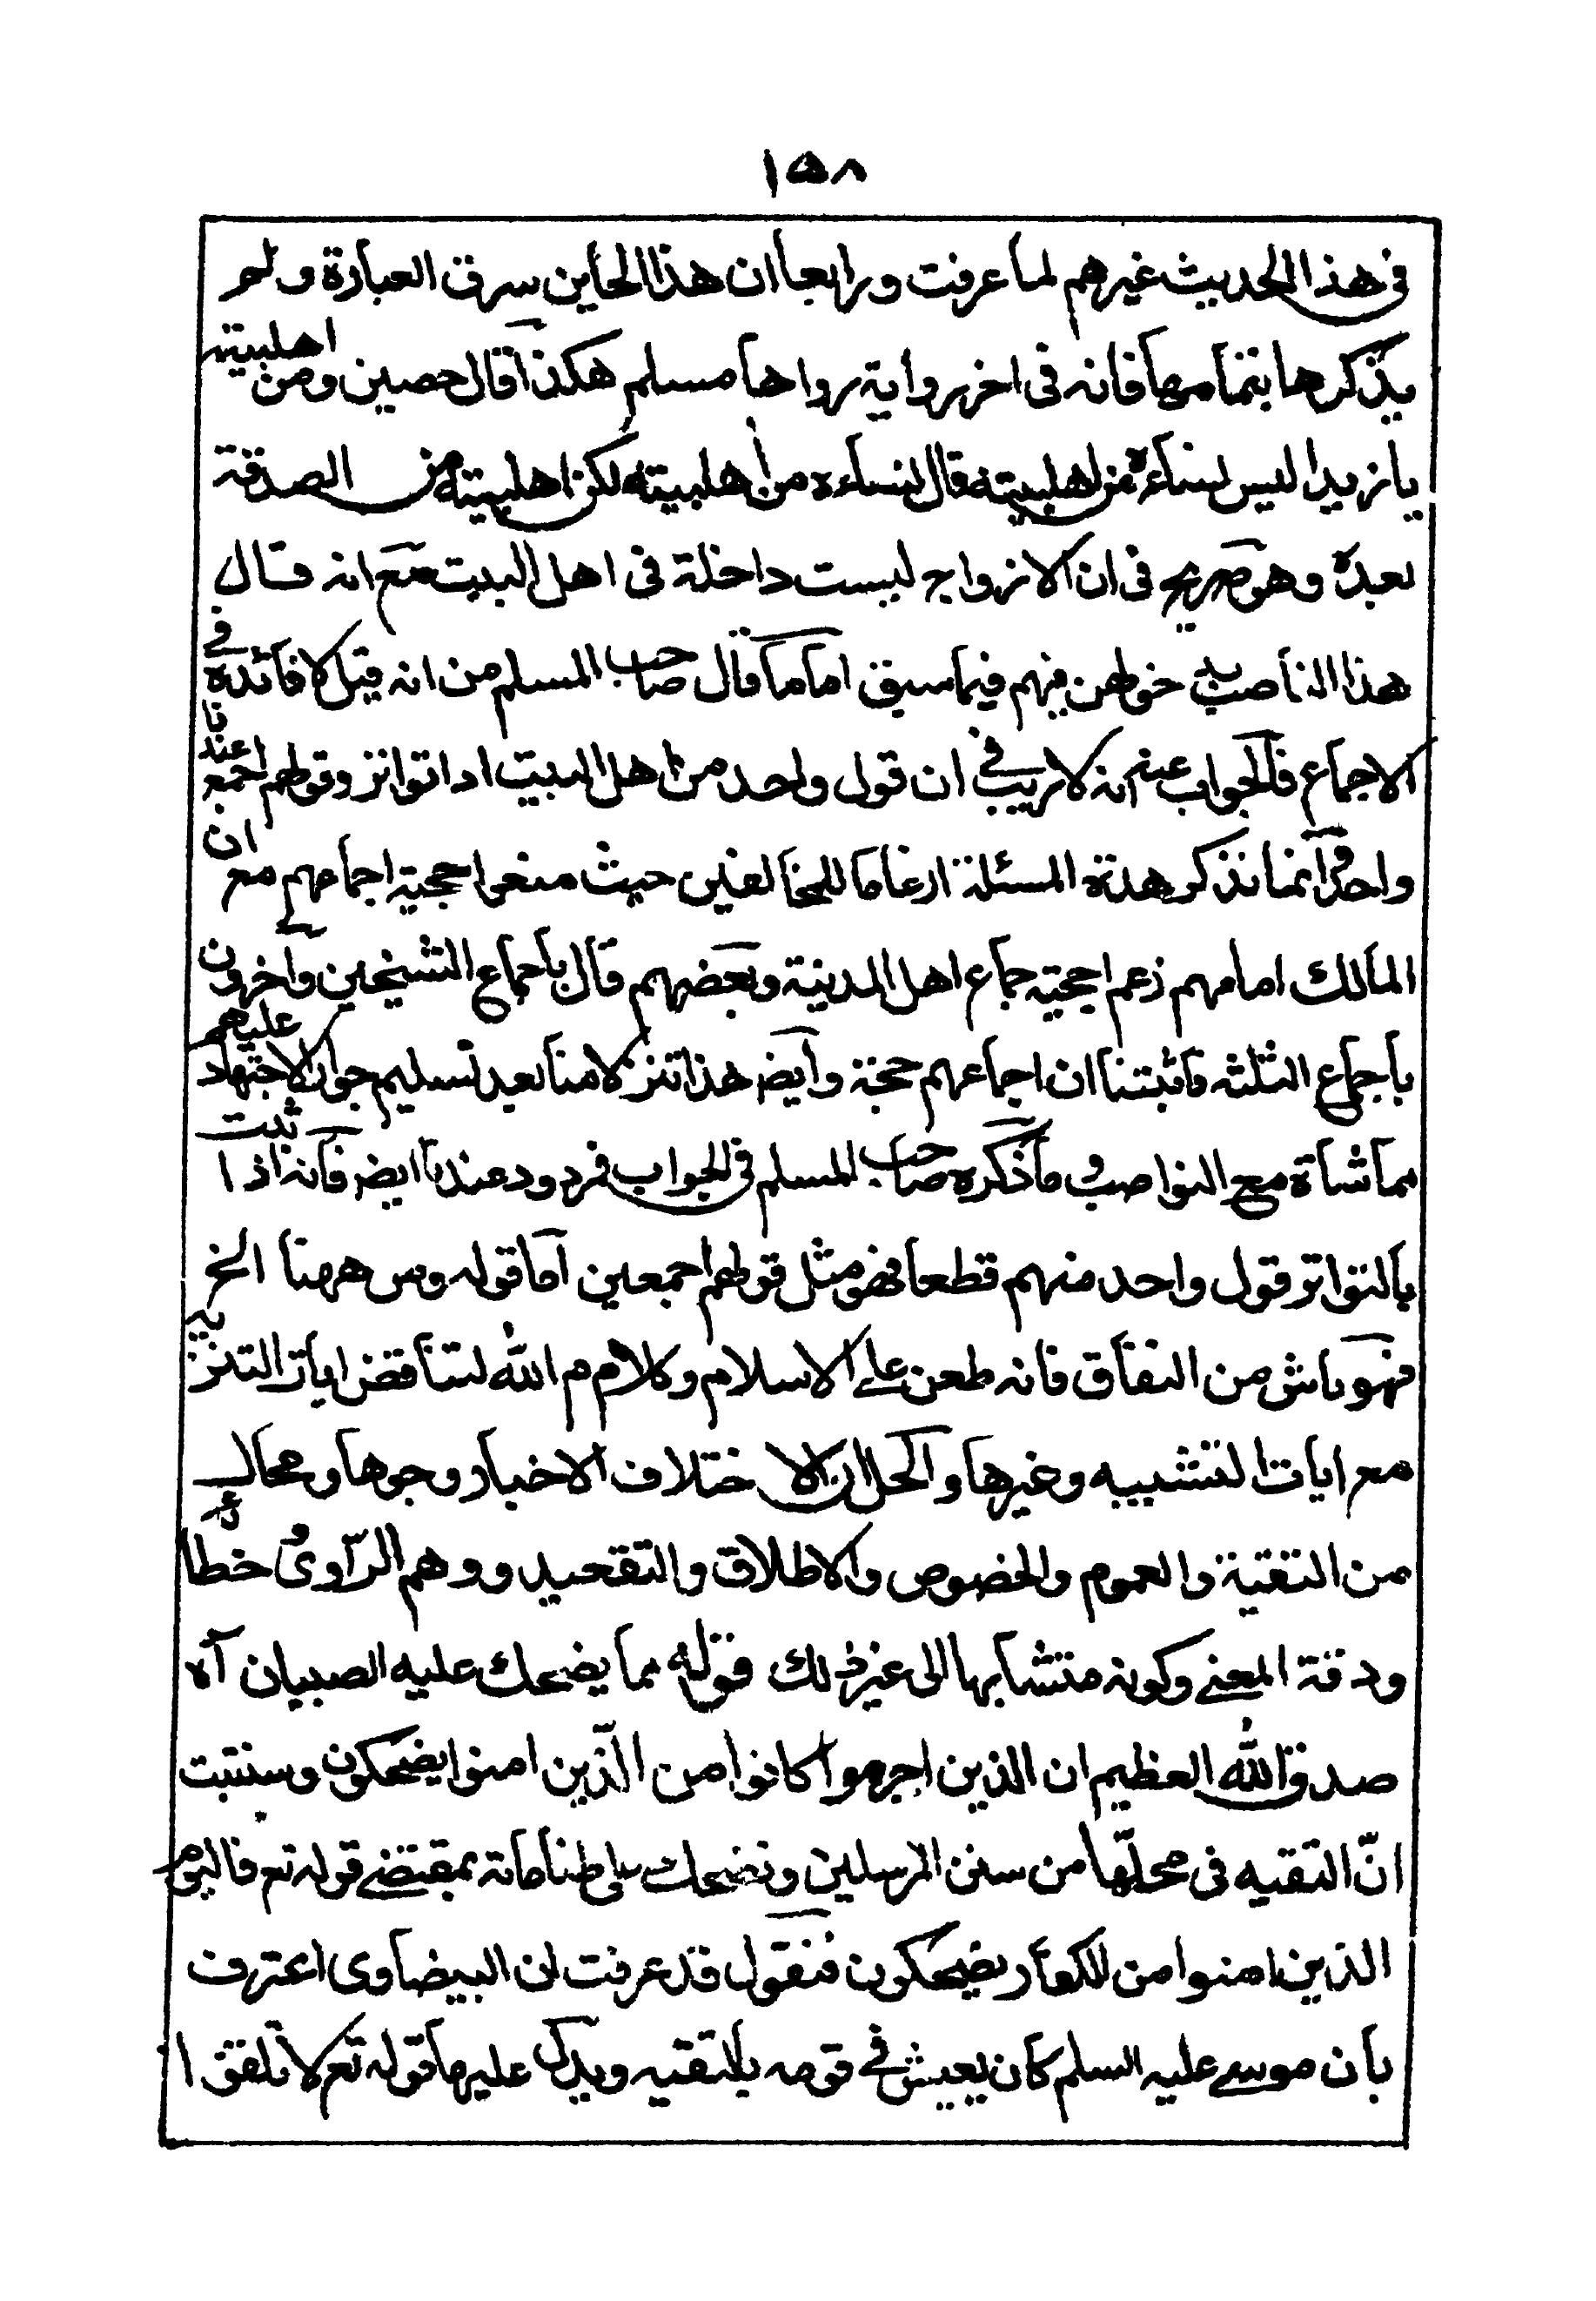 ١٥٨
في هذا الحديث غيرهم لما عرفت ورابعا ان هذا الخاين سرق العبارة ولم
يذكرها بتمامها فانه في اخر رواية رواها مسلم هكذا قال حصين ومن اهلبيته
يا زيد اليس نساءه من اهلبيته قال نساءه من اهلبيته لكن اهلبيته من الصدقة
بعده وهو صريح في ان الازواج ليست داخلة في اهل البيت مع انه قال
هذا الناصب خولهن فيهم فيما سبق اما ما قال صاحب المسلم من انه قيل لا فائدة في
الاجماع فالجواب عنه انه لا ريب في ان قول واحد من اهل البيت اذا تواتر وقولهم اجمع عندنا
واحد وانما نذكر هذه المسئلة ارغاما للمخالفين حيث منعوا حجية اجماعهم مع ان
المالك امامهم زعم حجية اجماع اهل المدينة وبعضهم قال باجماع الشيخين وآخرون
باجماع الثلثه فاثبتنا ان اجماعهم حجة وايضا هذا تنزلا منا بعد تسليم جواز الاجتهاد عليهم
مماشاة مع النواصب وما ذكره صاحب المسلم في الجواب فمردود عندنا ايض فانه اذا ثبت
بالتواتر قول واحد منهم قطعا فهو مثل قولهم اجمعين اما قوله ومن ههنا الخ
فهو ناش من النفاق فانه طعن على الاسلام وكلام الله لتناقض ايات التنزيه
مع ايات التشبيه وغيرها والحل ان لاختلاف الاخبار وجوها ومحال
من التقية والعموم والخصوص والاطلاق والتقييد ووهم الراوي وخطائه
ودقة المعنى وكونه متشابها الى غير ذلك قوله مما يضحك عليه الصبيان آه
صدق الله العظيم ان الذين اجرموا كانوا من الذين امنوا يضحكون وسنثبت
انّ التقيه في محلّها من سنن المرسلين ونضحك على طاماته بمقتضى قوله تع فاليوم
الذين امنوا من الكفار يضحكون فنقول قد عرفت ان البيضاوى اعترف
بان موسى عليه السلم كان يعيش في قومه بالتقيه ويدل عليها قوله تع لا تلقوا